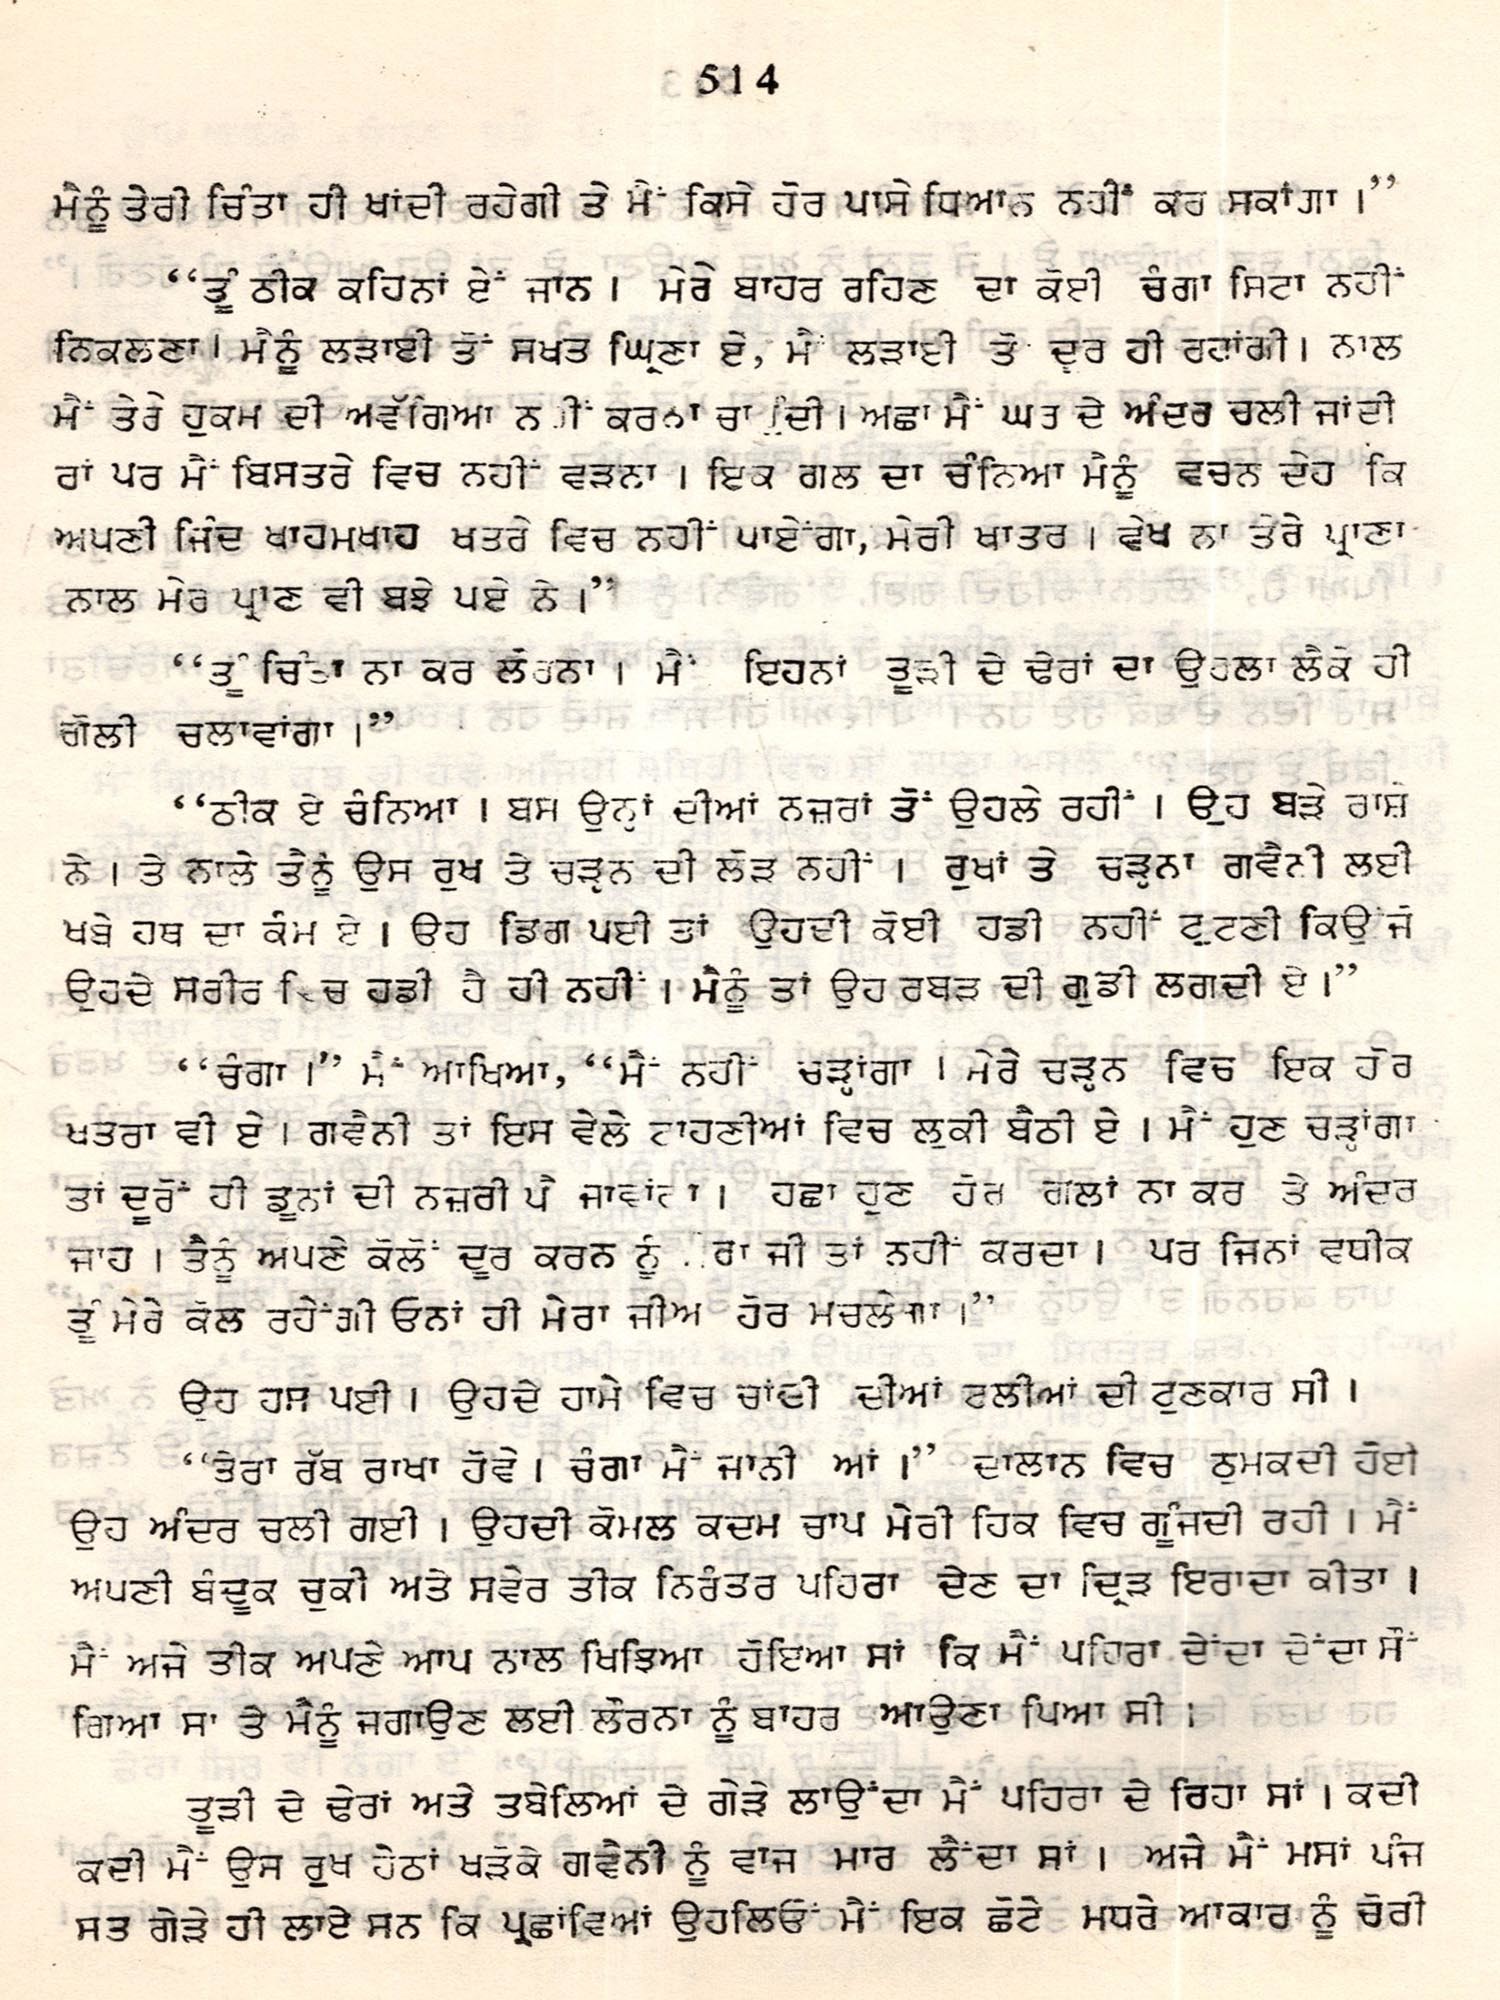 514
ਮੈਨੂੰ ਤੇਰੀ ਚਿੰਤਾ ਹੀ ਖਾਂਦੀ ਰਹੇਗੀ ਤੇ ਮੈਂ ਕਿਸੇ ਹੋਰ ਪਾਸੇ ਧਿਆਨ ਨਹੀਂ ਕਰ ਸਕਾਂਗਾ।”
“ਤੂੰ ਠੀਕ ਕਹਿਨਾਂ ਏਂ ਜਾਨ। ਮੇਰੇ ਬਾਹਰ ਰਹਿਣ ਦਾ ਕੋਈ ਚੰਗਾ ਸਿਟਾ ਨਹੀਂ
ਨਿਕਲਣਾ। ਮੈਨੂੰ ਲੜਾਈ ਤੋਂ ਸਖਤ ਘ੍ਰਿਣਾ ਏ, ਮੈਂ ਲੜਾਈ ਤੋਂ ਦੂਰ ਹੀ ਰਹਾਂਗੀ। ਨਾਲ
ਮੈਂ ਤੇਰੇ ਹੁਕਮ ਦੀ ਅਵੱਗਿਆ ਕਰਨਾ। ਅਛਾ ਮੈਂ ਦੇ ਅੰਦਰ ਚਲੀ ਜਾਂਦੀ
ਰਾਂ ਪਰ ਮੈਂ ਬਿਸਤਰੇ ਵਿਚ ਨਹੀਂ ਵੜਨਾ। ਇਕ ਗਲ ਦਾ ਚੰਨਿਆ ਮੈਨੂੰ ਵਚਨ ਦੇਹ ਕਿ
ਅਪਣੀ ਜਿੰਦ ਖਾਹਮਖਾਹ ਖਤਰੇ ਵਿਚ ਨਹੀਂ ਪਾਏਂਗਾ, ਮੇਰੀ ਖਾਤਰ। ਵੇਖ ਨਾ ਤੇਰੇ ਪ੍ਰਾਣਾ
ਨਾਲ ਮੇਰੇ ਪ੍ਰਾਣ ਵੀ ਬਝੇ ਪਏ ਨੇ।”
“ਤੂੰ ਚਿੰਤਾ ਨਾ ਕਰ ਲੌਰਨਾ। ਮੈਂ ਇਹਨਾਂ ਤੂੜੀ ਦੇ ਢੇਰਾਂ ਦਾ ਉਹਲਾ ਲੈਕੇ ਹੀ
ਗੋਲੀ ਚਲਾਵਾਂਗਾ।”
“ਠੀਕ ਏ ਚੰਨਿਆ। ਬਸ ਉਨ੍ਹਾਂ ਦੀਆਂ ਨਜ਼ਰਾਂ ਤੋਂ ਉਹਲੇ ਰਹੀਂ। ਉਹ ਬੜੇ ਰਾਸ਼ੇ
ਨੇ। ਤੇ ਨਾਲੇ ਤੈਨੂੰ ਉਸ ਰੁਖ ਤੇ ਚੜ੍ਹਨ ਦੀ ਲੋੜ ਨਹੀਂ। ਰੁਖਾਂ ਤੇ ਚੜ੍ਹਨਾ ਗਵੈਨੀ ਲਈ
ਖਬੇ ਹਥ ਦਾ ਕੰਮ ਏ। ਉਹ ਡਿਗ ਪਈ ਤਾਂ ਉਹਦੀ ਕੋਈ ਹਡੀ ਨਹੀਂ ਟੁਟਣੀ ਕਿਉਂ ਜੋ
ਉਹਦੇ ਸਰੀਰ ਵਿਚ ਹਡੀ ਹੈ ਹੀ ਨਹੀਂ। ਮੈਨੂੰ ਤਾਂ ਉਹ ਰਬੜ ਦੀ ਗੁਡੀ ਲਗਦੀ ਏ।”
“ਚੰਗਾ।” ਮੈਂ ਆਖਿਆ, “ਮੈਂ ਨਹੀਂ ਚੜ੍ਹਾਂਗਾ। ਮੇਰੇ ਚੜ੍ਹਨ ਵਿਚ ਇਕ ਹੋਰ
ਖਤਰਾ ਵੀ ਏ। ਗਵੈਨੀ ਤਾਂ ਇਸ ਵੇਲੇ ਟਾਹਣੀਆਂ ਵਿਚ ਲੁਕੀ ਬੈਠੀ ਏ। ਮੈਂ ਹੁਣ ਚੜ੍ਹਾਂਗਾ
ਤਾਂ ਦੂਰੋਂ ਹੀ ਡੂਨਾਂ ਦੀ ਨਜ਼ਰੀ ਪੈ ਜਾਵਾਂਗਾ। ਹਛਾ ਹੁਣ ਹੋਰ ਗਲਾਂ ਨਾ ਕਰ ਤੇ ਅੰਦਰ
ਜਾਹ। ਤੈਨੂੰ ਅਪਣੇ ਕੋਲੋਂ ਦੂਰ ਕਰਨ ਨੂੰ ਜੀ ਤਾਂ ਨਹੀਂ ਕਰਦਾ। ਪਰ ਜਿਨਾਂ ਵਧੀਕ
ਤੂੰ ਮੇਰੇ ਕੋਲ ਰਹੇਂਗੀ ਓਨਾਂ ਹੀ ਮੇਰਾ ਜੀਅ ਹੋਰ ਮਚਲੇਗਾ।”
ਉਹ ਹਸ ਪਈ। ਉਹਦੇ ਹਾਸੇ ਵਿਚ ਚਾਂਦੀ ਦੀਆਂ ਟਲੀਆਂ ਦੀ ਟੁਣਕਾਰ ਸੀ।
“ਤੇਰਾ ਰੱਬ ਰਾਖਾ ਹੋਵੇ। ਚੰਗਾ ਮੈਂ ਜਾਨੀ ਆਂ।” ਦਾਲਾਨ ਵਿਚ ਠੁਮਕਦੀ ਹੋਈ
ਉਹ ਅੰਦਰ ਚਲੀ ਗਈ। ਉਹਦੀ ਕੋਮਲ ਕਦਮ ਚਾਪ ਮੇਰੀ ਹਿਕ ਵਿਚ ਗੂੰਜਦੀ ਰਹੀ। ਮੈਂ
ਅਪਣੀ ਬੰਦੂਕ ਚੁਕੀ ਅਤੇ ਸਵੇਰ ਤੀਕ ਨਿਰੰਤਰ ਪਹਿਰਾ ਦੇਣ ਦਾ ਦ੍ਰਿੜ ਇਰਾਦਾ ਕੀਤਾ।
ਮੈਂ ਅਜੇ ਤੀਕ ਅਪਣੇ ਆਪ ਨਾਲ ਖਿਝਿਆ ਹੋਇਆ ਸਾਂ ਕਿ ਮੈਂ ਪਹਿਰਾ ਦੇਂਦਾ ਦੇਂਦਾ ਸੌਂ
ਗਿਆ ਸਾ ਤੇ ਮੈਨੂੰ ਜਗਾਉਣ ਲਈ ਲੌਰਨਾ ਨੂੰ ਬਾਹਰ ਆਉਣਾ ਪਿਆ ਸੀ।
ਤੂੜੀ ਦੇ ਢੇਰਾਂ ਅਤੇ ਤਬੇਲਿਆਂ ਦੇ ਗੇੜੇ ਲਾਉਂਦਾ ਮੈਂ ਪਹਿਰਾ ਦੇ ਰਿਹਾ ਸਾਂ। ਕਦੀ
ਕਦੀ ਮੈਂ ਉਸ ਰੁਖ ਹੇਠਾਂ ਖੜੋਕੇ ਗਵੈਨੀ ਨੂੰ ਵਾਜ ਮਾਰ ਲੈਂਦਾ ਸਾਂ। ਅਜੇ ਮੈਂ ਮਸਾਂ ਪੰਜ
ਸਤ ਗੇੜੇ ਹੀ ਲਾਏ ਸਨ ਕਿ ਪ੍ਰਛਾਂਵਿਆਂ ਉਹਲਿਓਂ ਮੈਂ ਇਕ ਛੋਟੇ ਮਧਰੇ ਆਕਾਰ ਨੂੰ ਚੋਰੀ